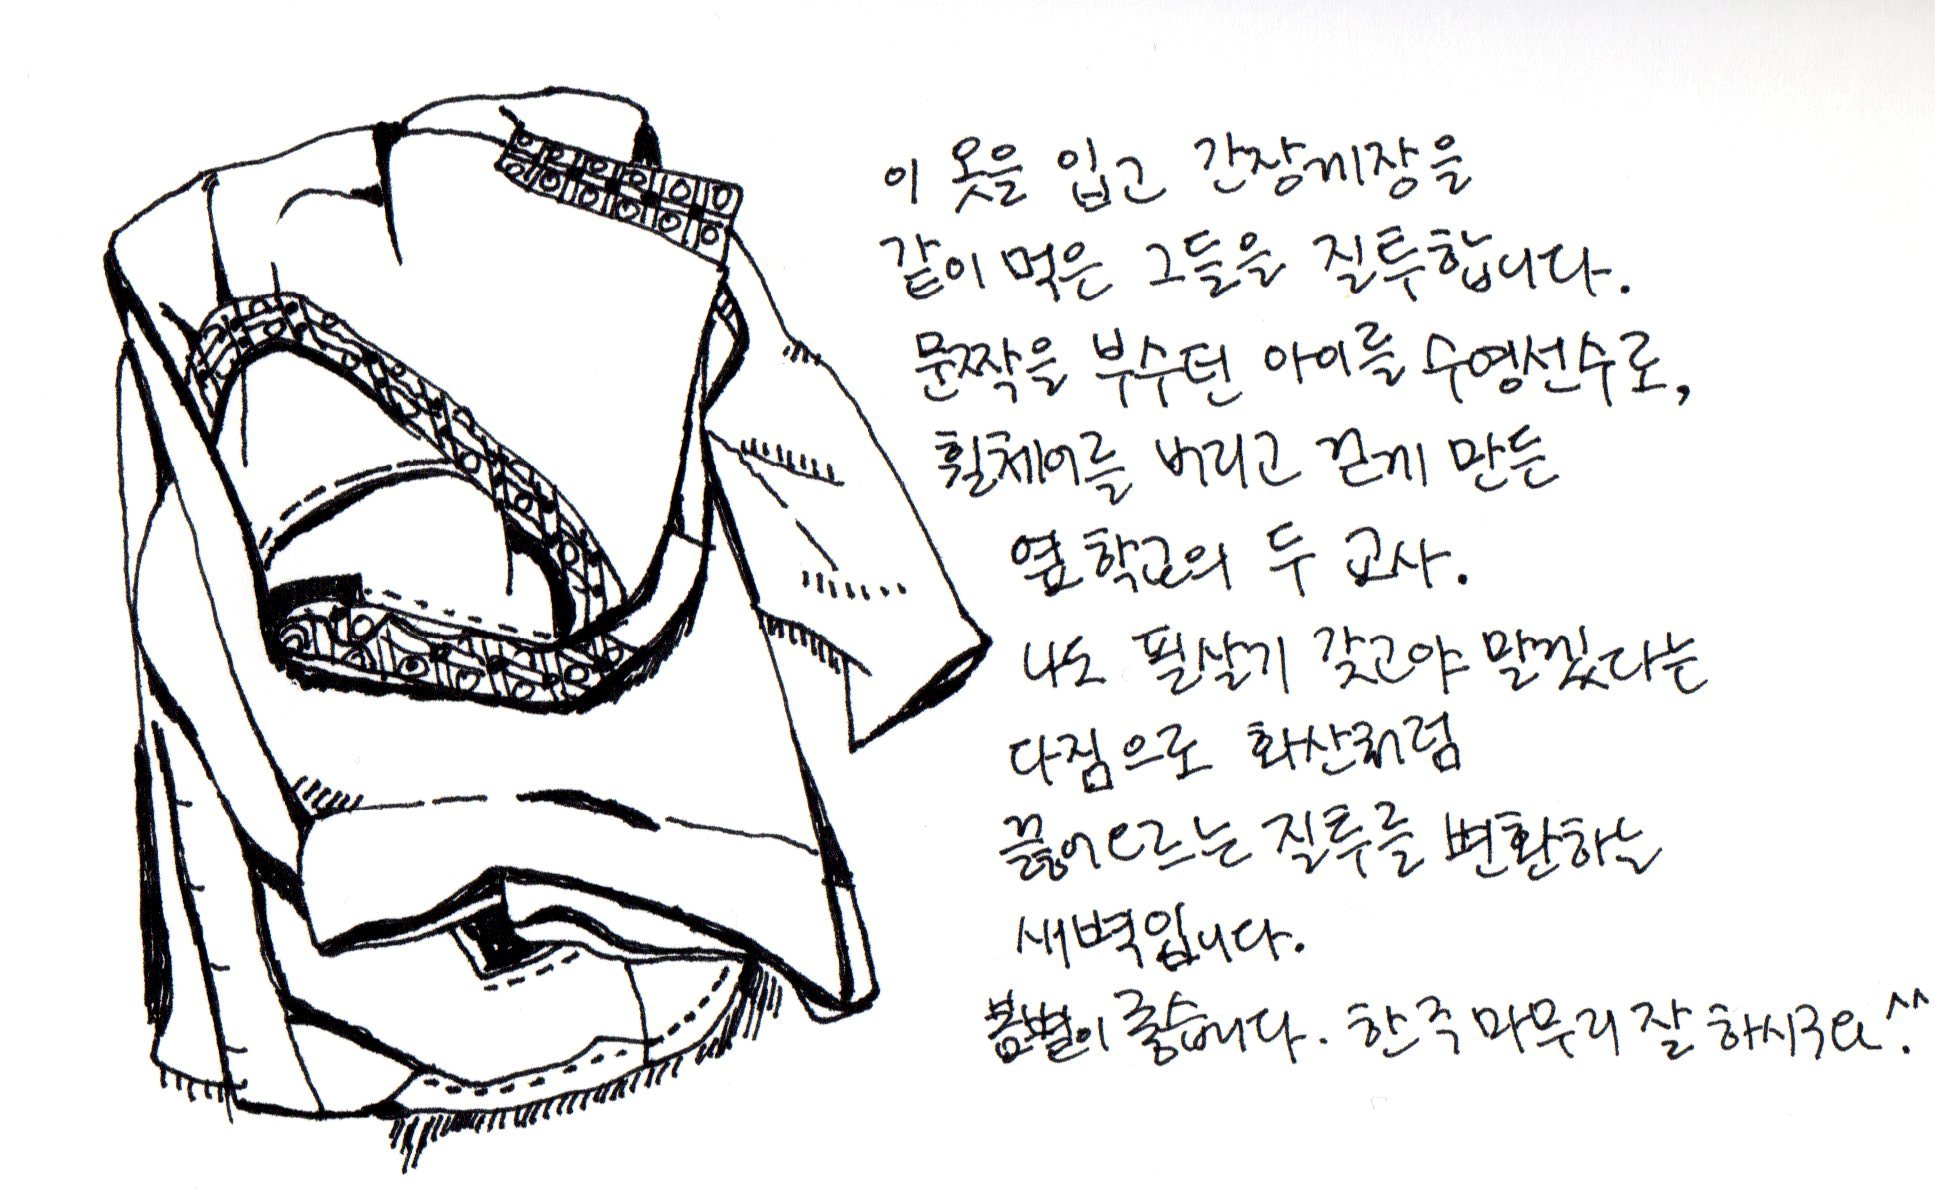 이 옷을 입고 간장게장을
같이 먹은 그들을 질투합니다.
문짝을 부수던 아이를 수영선수로,
휠체어를 버리고 걷게 만든
옆 학교의 두 교사.
나도 필살기 갖고야 말겠다는
다짐으로 화산처럼
끓어오르는 질투를 변환하는
새벽입니다.
봄볕이 좋습니다. 한 주 마무리 잘 하시구요^^.